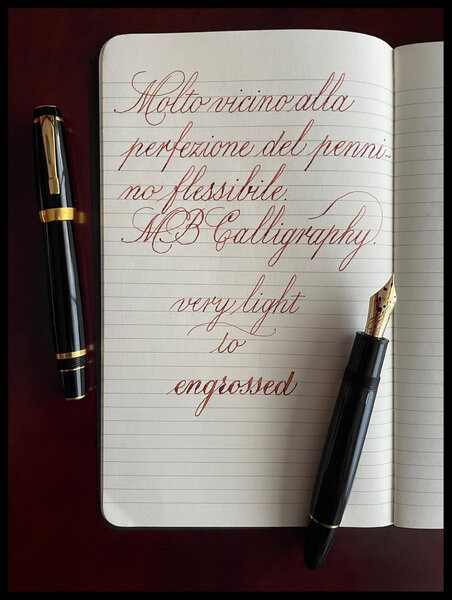 Molto vicino alla
perfezione del penni~
no flessibile.
MB Calligraphy.
very light
to
engrossed